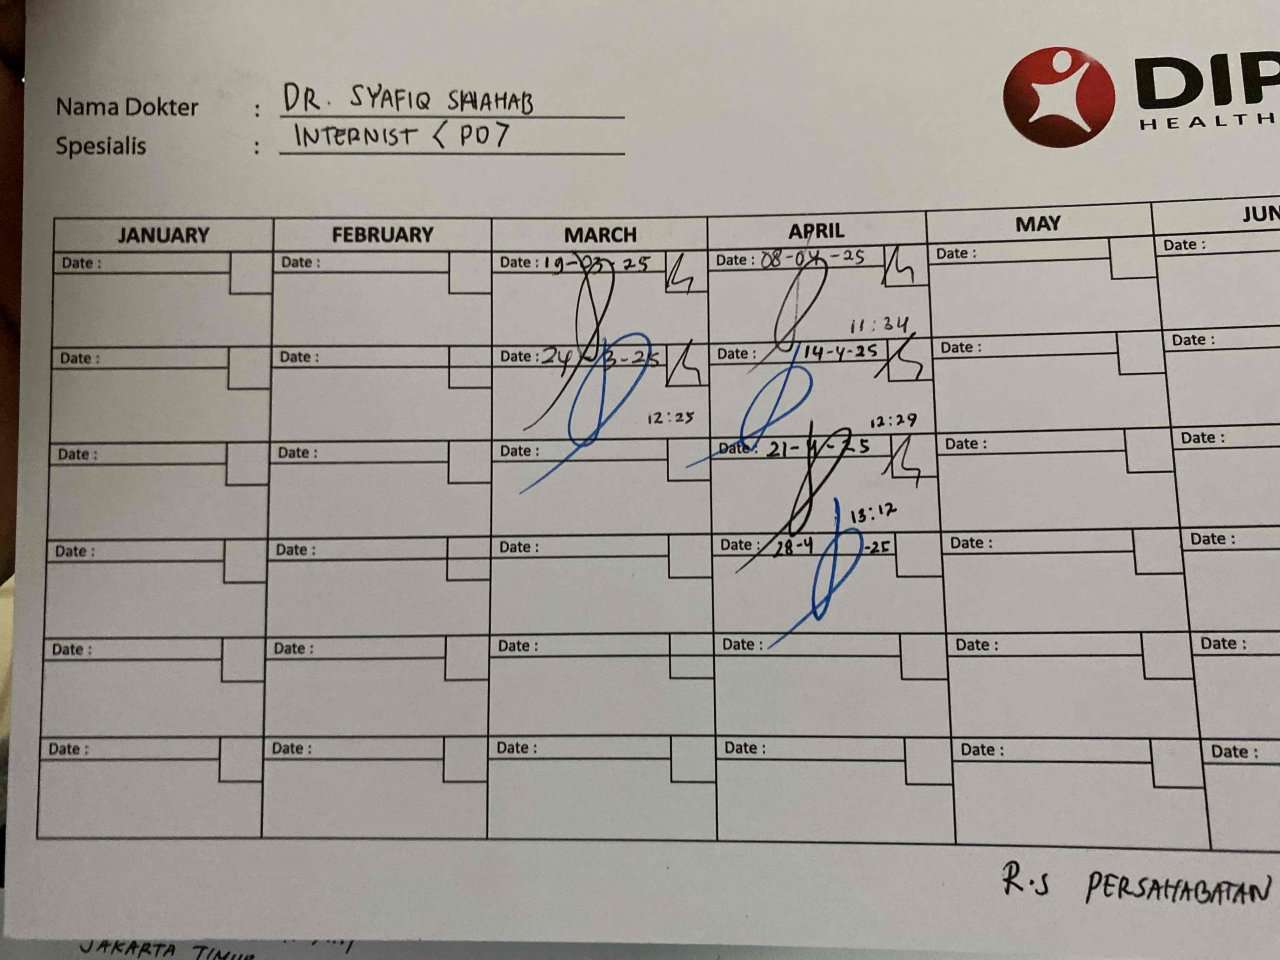 Nama Dokter : DR. SYAFIQ SHAHAB
Spesialis : INTERNIST < PD 7
DIP
HEALTH
JANUARY FEBRUARY MARCH APRIL MAY JUN
Date : Date : Date : 19-03-25 Date : 08-04-25 Date : Date :
11:34
Date : Date : Date : 24-3-25 Date : 14-4-25 Date : Date :
12:25 12:29
Date : Date : Date : Date : 21-4-25 Date : Date :
13:12
Date : Date : Date : Date : 28-4-25 Date : Date :
Date : Date : Date : Date : Date : Date :
Date : Date : Date : Date : Date : Date :
R.S PERSAHABATAN
JAKARTA TIMUR